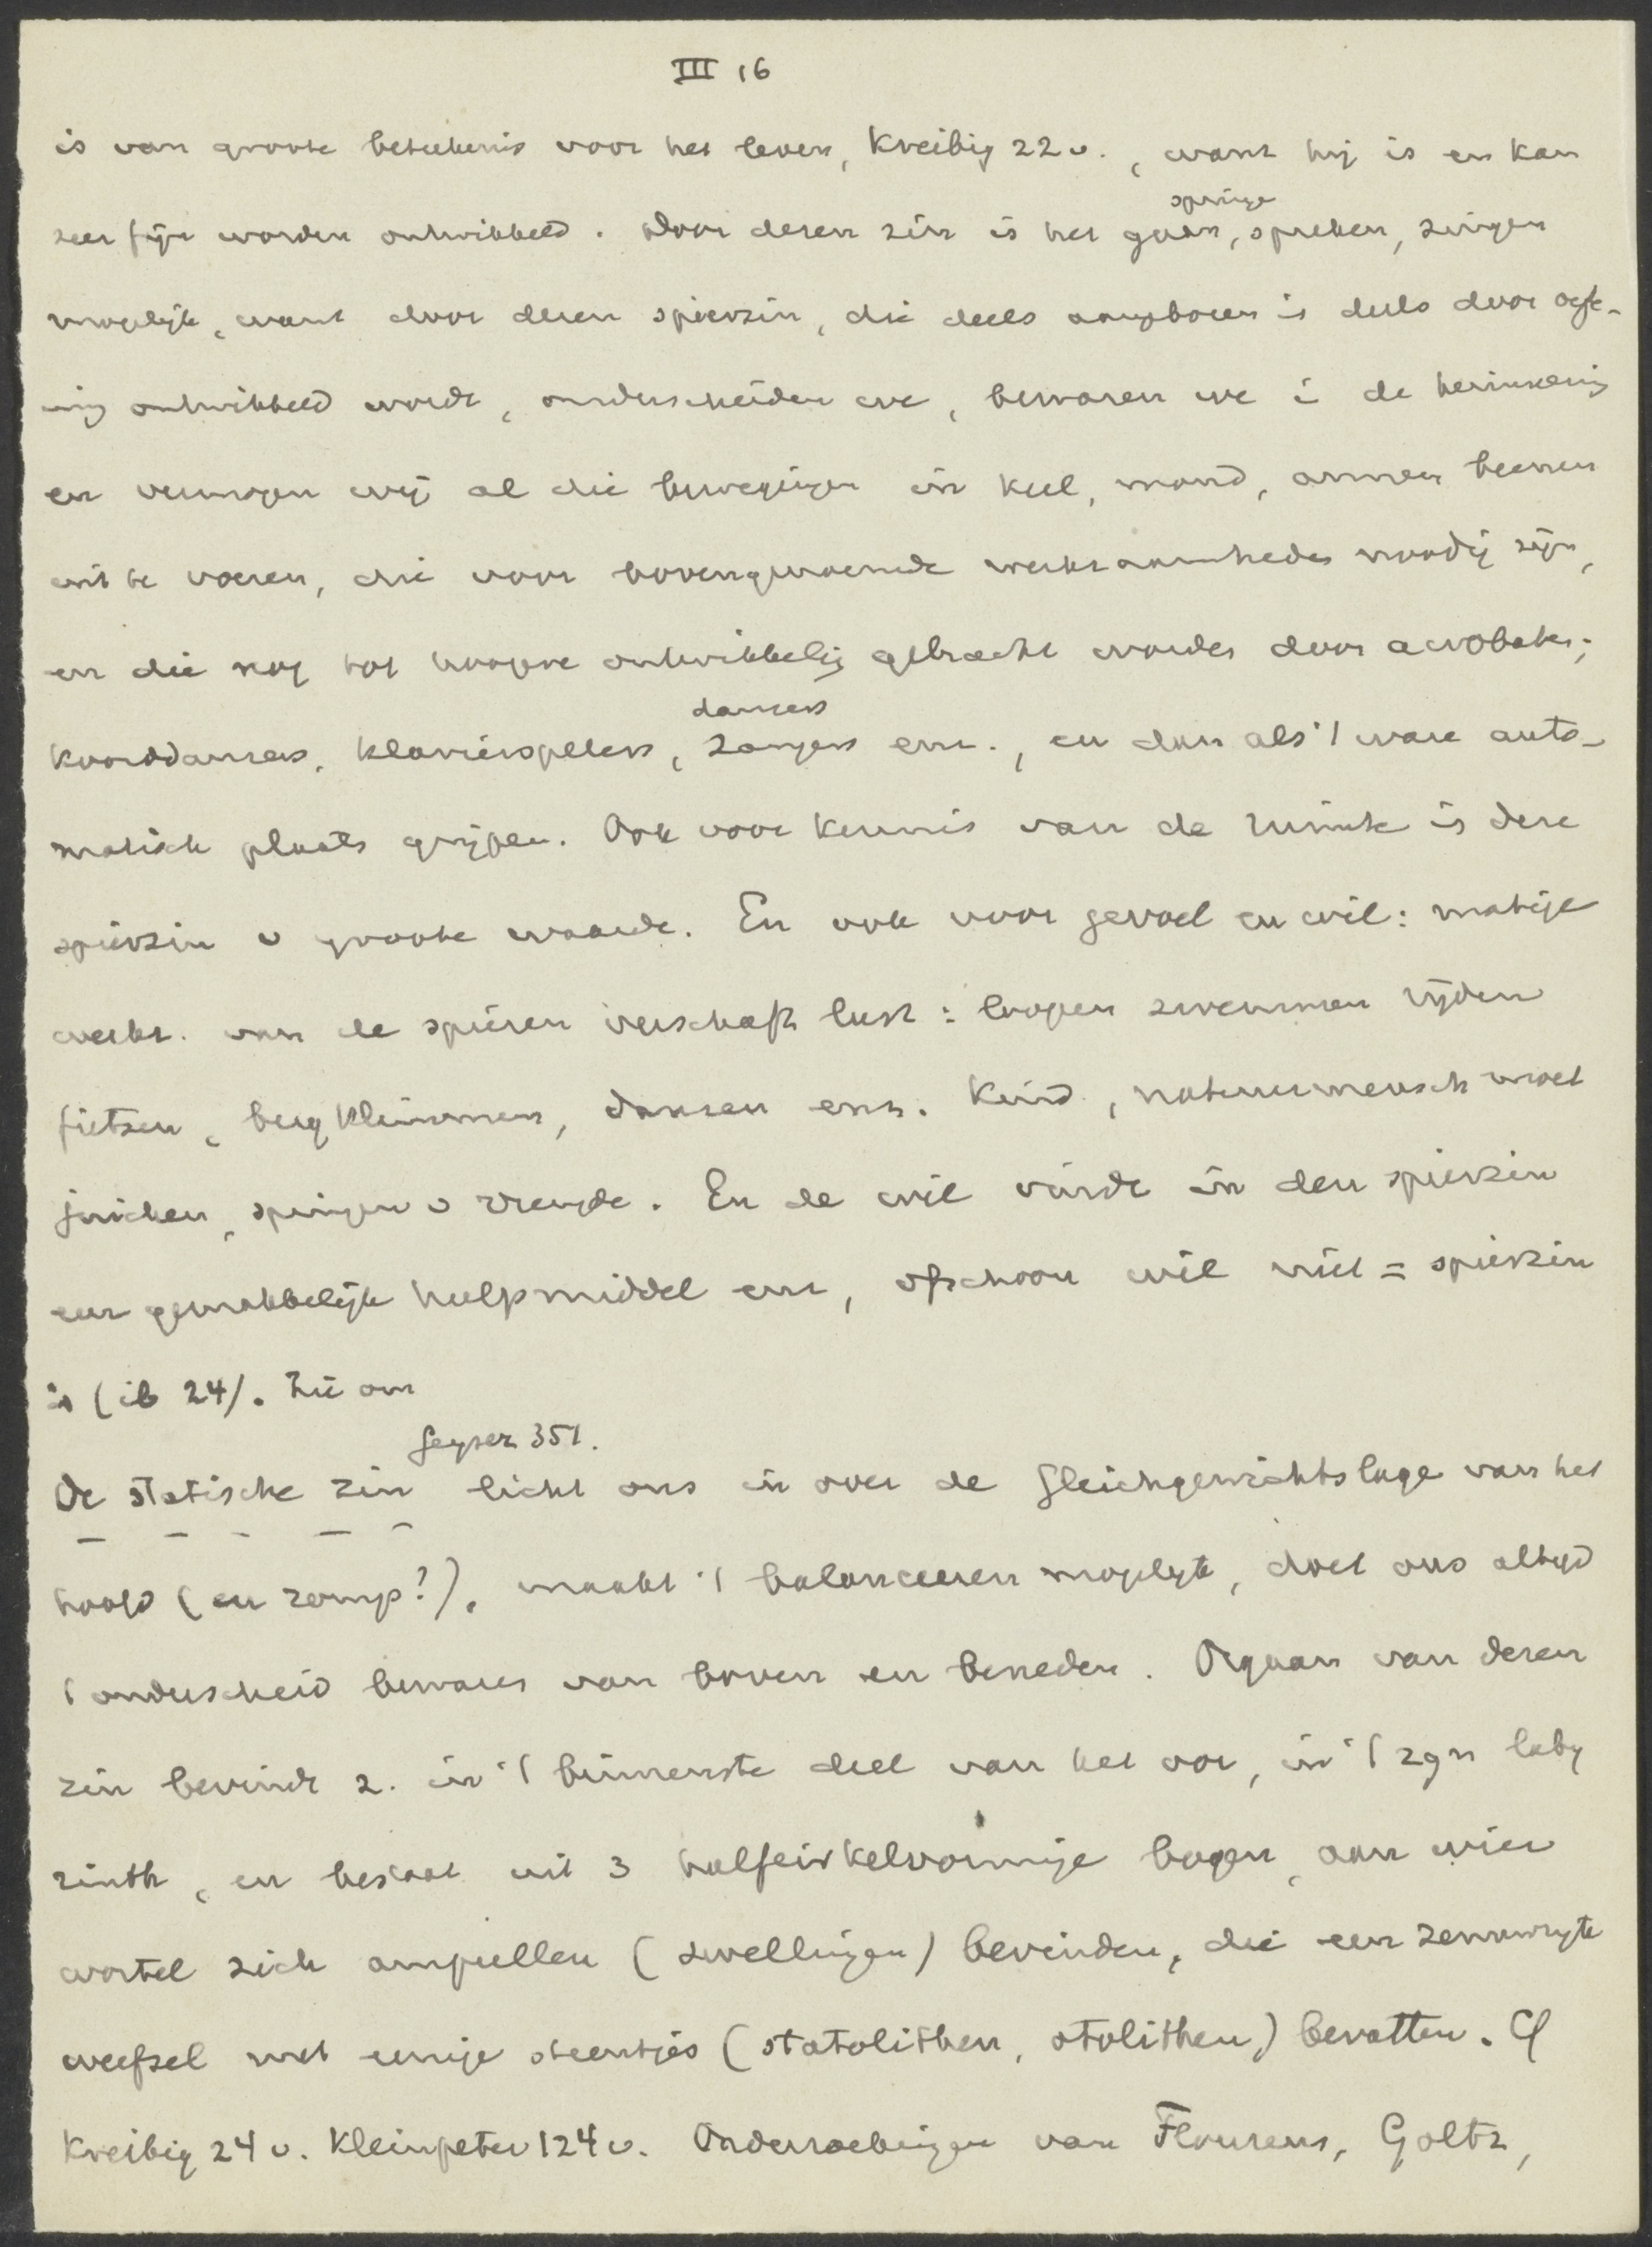 III 16
is van groote beteekenis voor het leven, Kreibig 22 v., want hij is en kan
springe
zeer fijn worden ontwikkeld. Door dezen zin is het gaan, spreken, zingen
mogelijk, want door dezen spierzin, die deels aangeboren is deels door oefe-
ning ontwikkeld wordt, onderscheiden we, bewaren we i de herinnering
en vermogen wij al die bewegingen in keel, mond, armen beenen
uit te voeren, die voor bovengenoemde werkzaamheden noodig zijn,
en die nog tot hoogere ontwikkeling gebracht worden door acrobaten,
dansers
koorddansers, klavierspelers, zangers enz., en dan als 't ware auto-
matisch plaats grijpen. Ook voor kennis van de ruimte is deze
spierzin v groote waarde. En ook voor gevoel en wil: matige
werkz. van de spieren verschaft lust: loopen zwemmen rijden
fietsen, bergklimmen, dansen enz. Kind, natuurmensch moet
juichen, springen v vreugde. En de wil vindt in den spierzin
een gemakkelijk hulpmiddel enz, ofschoon wil niet = spierzin
is (ib 24). Zie ov
Geyser 351.
De statische zin licht ons in over de Gleichgewichtslage van het
hoofd (en romp?), maakt 't balanceeren mogelijk, doet ons altijd
't onderscheid bewaren van boven en beneden. Orgaan van dezen
zin bevindt z. in 't binnenste deel van het oor, in 't zgn laby
rinth, en bestaat uit 3 halfcirkelvormige bogen, aan wier
wortel zich ampullen (zwellingen) bevinden, die een zenuwrijk
weefsel met eenige steentjes (statolithen, otolithen) bevatten. Cf
Kreibig 24 v. Kleinpeter 124 v. Onderzoekingen van Flourens, Goltz,